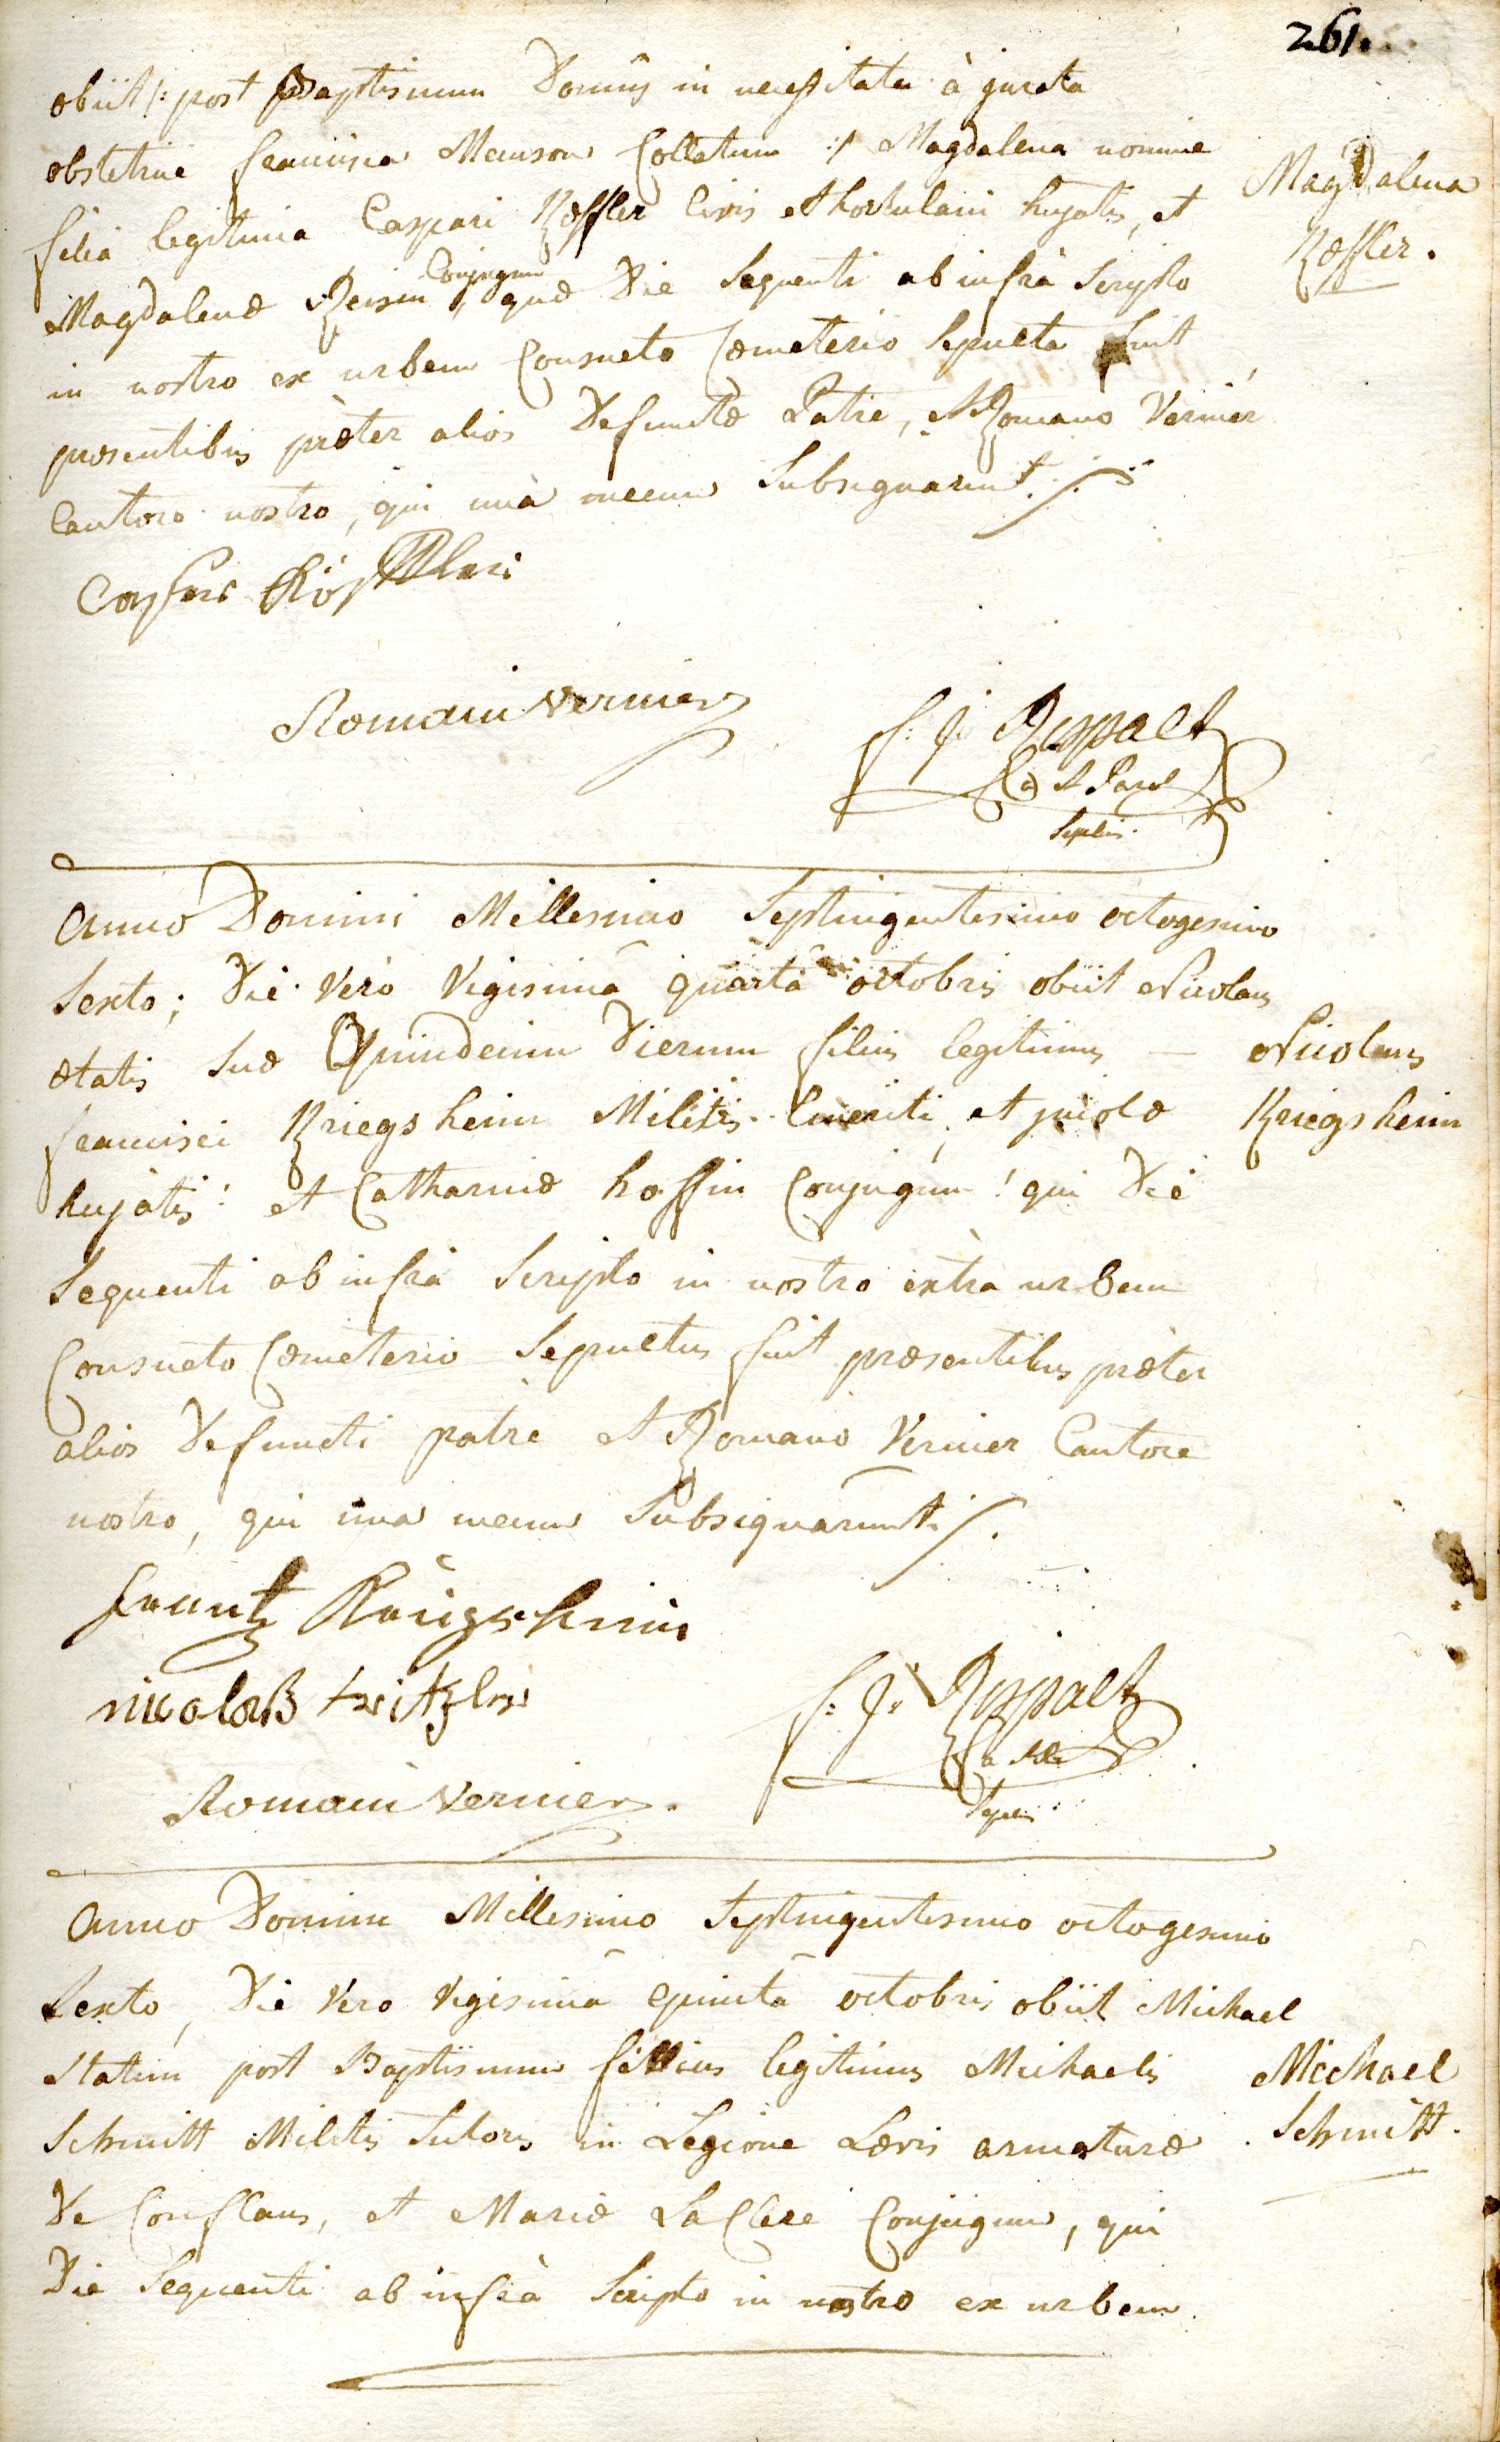 261.
obiit /: post Baptismum Domi in necessitate à jurata
obstetrice francisca Manson Collatum :/ Magdalena nomine
filia legitima Caspari Kœffler Civis et hortulani hujatis, et
Magdalena
Kœffler.
Magdalenæ Reisin Conjugum, quæ Die Sequenti ab infrà Scripto
in nostro ex urbem Consueto Cœmeterio Sepulta fuit
præsentibus præter alios Defunctæ Patre, et Romano Vernier
Cantore nostro, qui unà mecum Subsignarunt ./.
Casper
Romain Vernier
f: J. Ruppalt
Anno Domini Millesimo Septingentesimo octogesimo
Sexto; Die Vero Vigesimâ quartâ octobris obiit Nicolaus
ætatis Suæ Quindecim Dierum filius legitimus —
Nicolaus
francisci Kriegsheim Militis Emeriti, et incolæ
Kriegsheim
hujatis! et Catharinæ hoffin Conjugum! qui Die
Sequenti ab infrà Scripto in nostro extrà urbem
Consueto Cœmeterio Sepultus fuit præsentibus præter
alios Defuncti patre et Romano Vernier Cantore
nostro, qui una mecum Subsignarunt /.
frantz Kriegsheim
nicolaß
f: J. Ruppalt
Romain Vernier.
Anno Domini Millesimo Septingentesimo octogesimo
Sexto, Die Vero Vigesimâ quintâ octobris obiit Michael
Statim post Baptismum filius legitimus Michaelis
Michael
Schmitt Militis Sutoris in Legione Lævis armaturæ
Schmitt.
De Conflans, et Mariæ La Clere Conjugum, qui
Die Sequenti ab infrà Scripto in nostro ex urbem